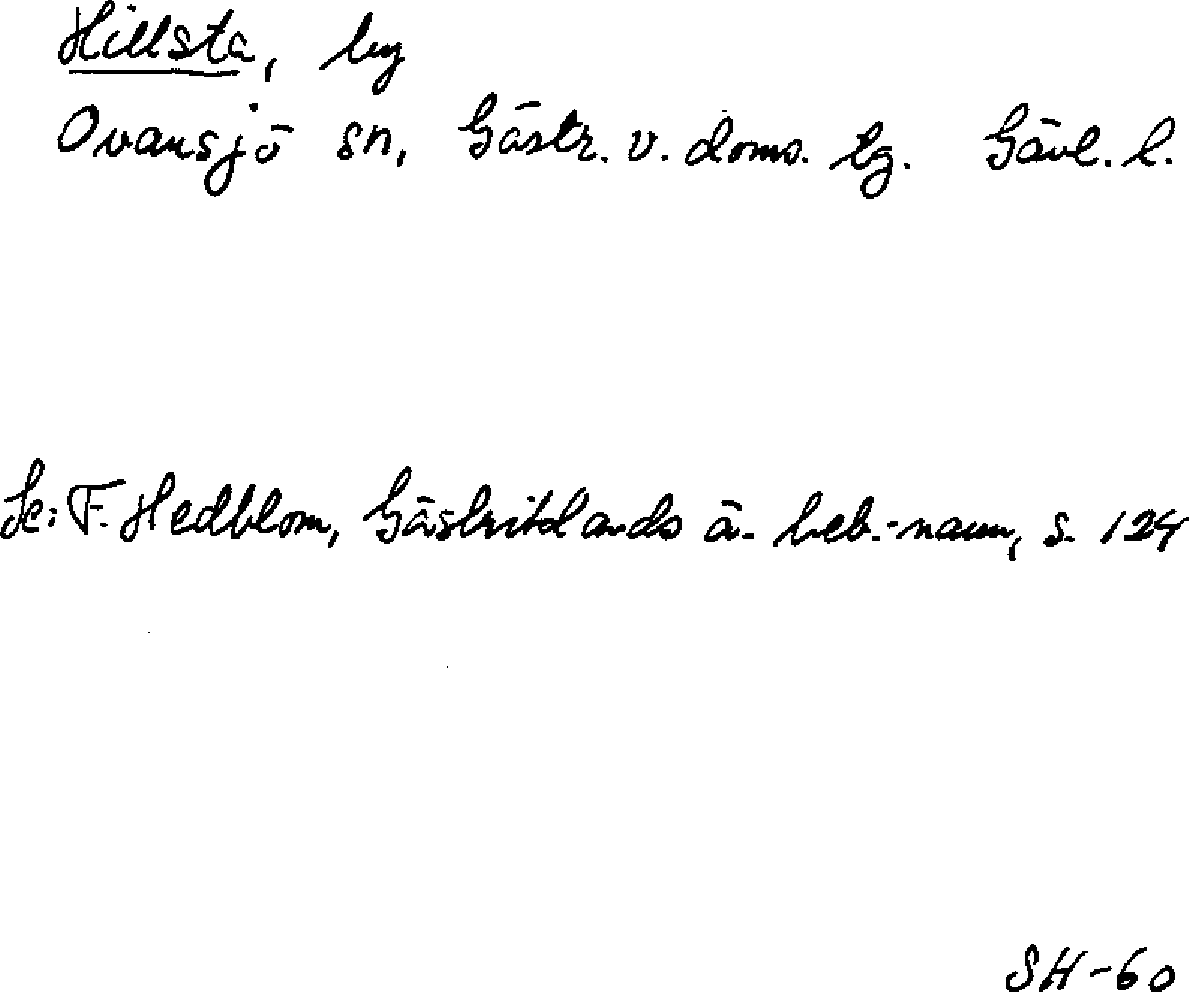 Hillsta, by
Ovansjö sn, Gästr. v. doms. tg. Gävl. l.
Se: F. Hedblom, Gästriklands ä. beb.-namn, s. 124
SH-60